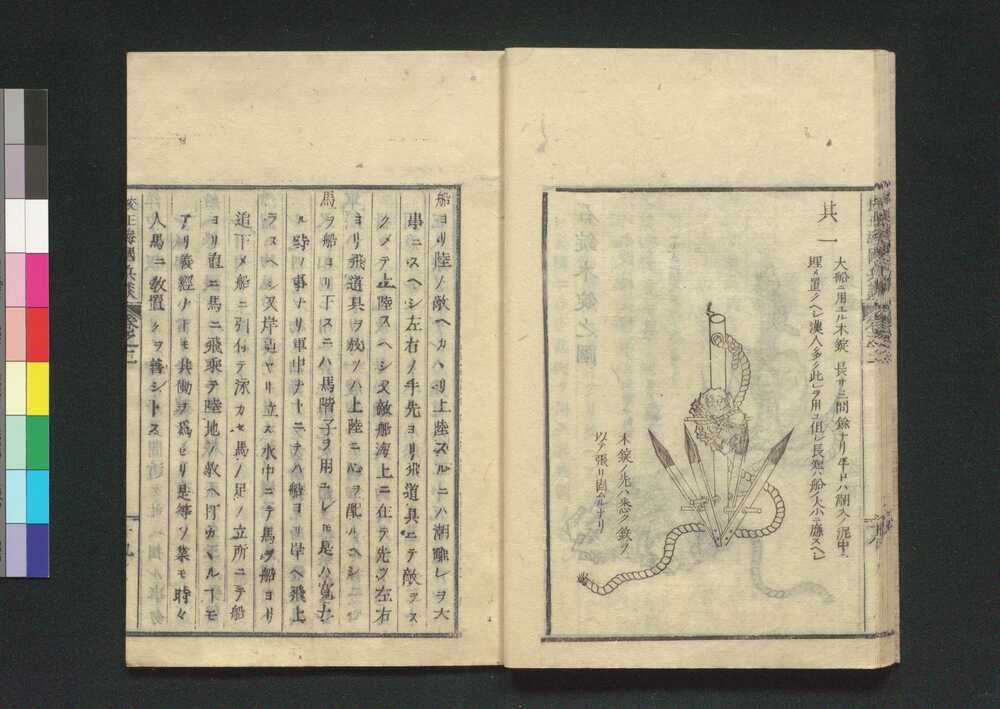 其一
大船ニ用ユル木錠長サ二間餘ナリ平日ハ潮入ノ泥中ニ
埋メ置クヘシ漢人多ク此ヲ用ユ但シ長短ハ船ノ大小ニ應スヘシ
木錠ノ先ハ悉ク鉄ヲ
以テ張リ固ムルナリ
船ヨリ陸ノ敵ヘカヽリ上陸スルニハ潮離レヲ大
事ニスヘシ左右ノ手先ヨリ飛道具ニテ敵ヲス
クメテ上陸スヘシ又敵船海上ニ在テ先ツ左右
ヨリ飛道具ヲ放ツハ上陸ニ心ヲ配ルヘシ
馬ヲ船ヨリ下スニハ馬階子ヲ用ユレ𪜈是ハ寛
ル時ノ事ナリ軍中ナトニテハ船ヨリ岸ヘ飛上
ラスヘシ又岸近ヤリ立ス水中ニテ馬ヲ船ヨリ
追下メ船ニ引付テ泳カセ馬ノ足ノ立所ニテ船
ヨリ直ニ馬ニ飛乘テ陸地ノ敵ヘ打カヽルーモ
アリ義經ナトモ其働ヲ爲セリ是等ノ業モ時々
人馬ニ敎置クヲ善シトス
校正海國兵談 卷之二
十九